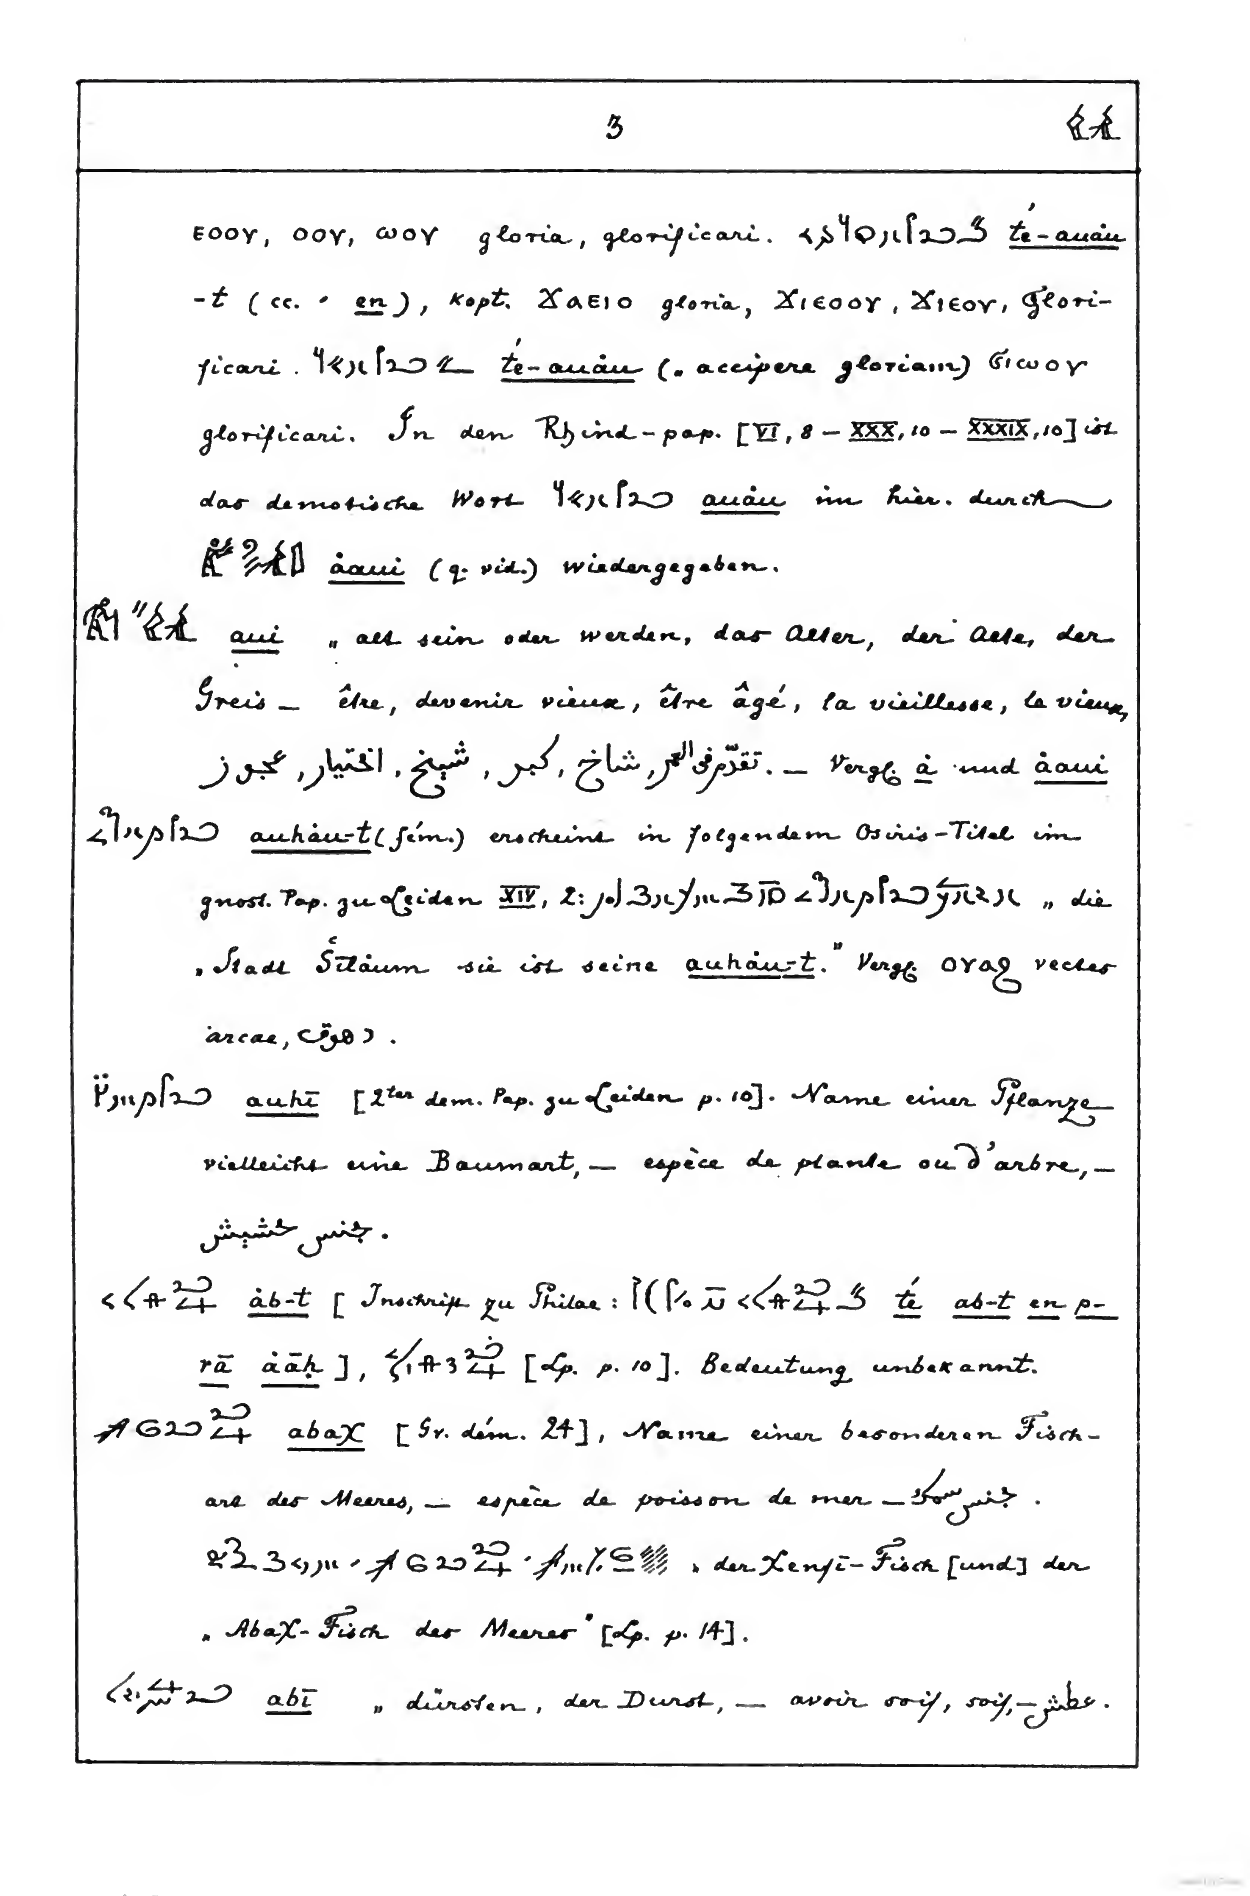 3
ⲉⲟⲟⲩ, ⲟⲟⲩ, ⲱⲟⲩ gloria, glorificari. té-auȧu
-t (cc. · en), kopt. ϪⲀⲈⲒⲞ gloria, Ϫⲓⲉⲟⲟⲩ, Ϫⲓⲉⲟⲩ, Glori-
ficari. té-auȧu („ accipere gloriam) ϭⲓⲱⲟⲩ
glorificari. In den Rhind-pap. [VI, 8 – XXX, 10 – XXXIX, 10] ist
das demotische Wort auȧu im hier. durch
ȧaui (q. vid.) wiedergegeben.
aui „ alt sein oder werden, das Alter, der Alte, der
Greis – être, devenir vieux, être âgé, la vieillesse, le vieux,
تقدّم فى العمر, شاخ, كبر, شيخ, اختيار, عجوز. – Vergl. ȧ und ȧaui
auhȧu-t (fém.) erscheint in folgendem Osiris-Titel im
gnost. Pap. zu Leiden XIV, 2: „ die
„ Stadt sie ist seine auhȧu-t." Vergl. ⲟⲩⲁϩ vectes
arcae,
auhī [2ter dem. Pap. zu Leiden p. 10]. Name einer Pflanze
vielleicht eine Baumart, – espèce de plante ou d'arbre, –
جنس حشيش.
ȧb-t [Inschrift zu Philae: té ab-t en p-
rā ȧāḥ], [Lp. p. 10]. Bedeutung unbekannt.
abaχ [Gr. dém. 24], Name einer besonderen Fisch-
art des Meeres, – espèce de poisson de mer – جنس سمك.
„ der Xenfī-Fisch [und] der
„ Abaχ-Fisch des Meeres" [Lp. p. 14].
abī „ dürsten, der Durst, – avoir soif, soif, – عطش.